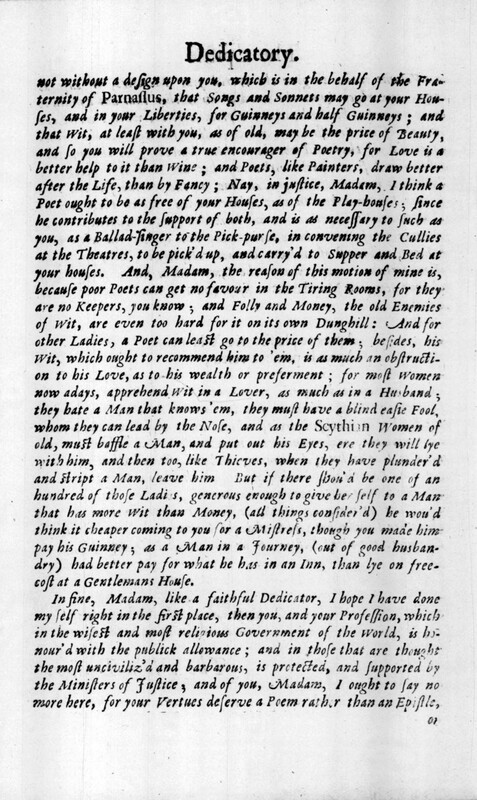 Dedicatory.
not without a deſign upon you, which is in the behalf of the Fra-
ternity of Parnaſſus, that Songs and Sonnets may go at your Hou-
ſes, and in your Liberties, for Guinneys and half Guinneys; and
that Wit, at leaſt with you, as of old, may be the price of Beauty,
and ſo you will prove a true encourager of Poetry, for Love is a
better help to it than Wine; and Poets, like Painters, draw better
after the Life, than by Fancy; Nay, in juſtice, Madam, I think a
Poet ought to be as free of your Houſes, as of the Play-houſes; ſince
he contributes to the ſupport of both, and is as neceſſary to ſuch as
you, as a Ballad-ſinger to the Pick-purſe, in convening the Cullies
at the Theatres, to be pick'd up, and carry'd to Supper and Bed at
your houſes. And, Madam, the reaſon of this motion of mine is,
becauſe poor Poets can get no favour in the Tiring Rooms, for they
are no Keepers, you know; and Folly and Money, the old Enemies
of Wit, are even too hard for it on its own Dunghill: And for
other Ladies, a Poet can leaſt go to the price of them; beſides, his
Wit, which ought to recommend him to 'em, is as much an obſtructi-
on to his Love, as to his wealth or preferment; for moſt Women
now adays, apprehend Wit in a Lover, as much as in a Husband;
they hate a Man that knows 'em, they muſt have a blind eaſie Fool,
whom they can lead by the Noſe, and as the Scythian Women of
old, muſt baffle a Man, and put out his Eyes, ere they will lye
with him, and then too, like Thieves, when they have plunder'd
and ſtript a Man, leave him But if there ſhou'd be one of an
hundred of thoſe Ladies, generous enough to give her ſelf to a Man
that has more Wit than Money, (all things conſider'd) he wou'd
think it cheaper coming to you for a Miſtreſs, though you made him
pay his Guinney; as a Man in a Journey, (out of good husban-
dry) had better pay for what he has in an Inn, than lye on free-
coſt at a Gentlemans Houſe.
In fine, Madam, like a faithful Dedicator, I hope I have done
my ſelf right in the firſt place, then you, and your Profeſſion, which
in the wiſeſt and moſt religious Government of the World, is ho-
nour'd with the publick allowance; and in thoſe that are thought
the moſt unciviliz'd and barbarous, is protected, and ſupported by
the Miniſters of Juſtice; and of you, Madam, I ought to ſay no
more here, for your Vertues deſerve a Poem rather than an Epiſtle,
or